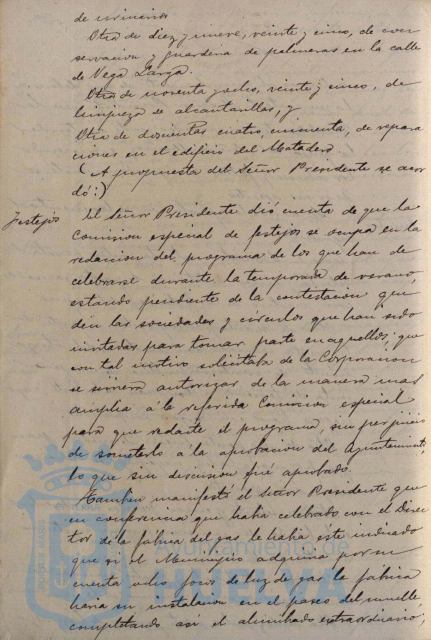 de urinarios
Otra de diez y nueve, veinte y cinco, de con
servacion y guarderia de palmeras en la calle
de Vega Larga.
Otra de noventa y ocho, veinte y cinco, de
limpieza de alcantarillas, y
Otra de doscientas cuatro, cincuenta, de repara
ciones en el edificio del Matadero.
(A propuesta del Señor Presidente se acor
dó:)
Festejos
El Señor Presidente dió cuenta de que la
Comision especial de festejos se ocupa en la
redaccion del programa de los que han de
celebrarse durante la temporada de verano,
estando pendiente de la contestacion que
den las sociedades y círculos que han sido
invitadas para tomar parte en aquellos; que
con tal motivo solicitaba de la Corporacion
se sirviera autorizar de la manera mas
amplia á la referida Comision especial
para que redacte el programa, sin perjuicio
de someterlo á la aprobacion del Ayuntamiento,
lo que sin discusion fué aprobado.
Tambien manifestó el Señor Presidente que
en conferencia que habia celebrado con el Direc
tor de la fábrica del gas le habia este indicado
que si el Municipio adquiria por su
cuenta ocho focos de luz de gas la fábrica
haria su instalacion en el paseo del muelle,
completando asi el alumbrado extraordinario,
Ayuntamiento de
HUELVA